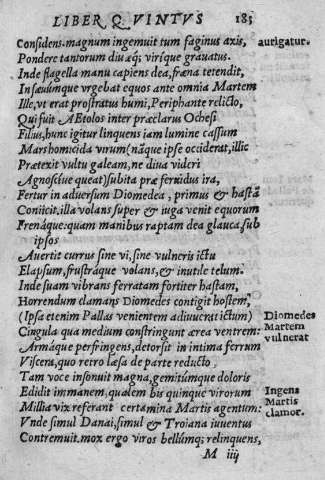 LIBER QVINTVS 185
Considens. magnum ingemuit tum faginus axis, aurigatur.
Pondere tantorum diuûq́; virique grauatus.
Inde flagella manu capiens dea, fræna tetendit,
Insæuumque vrgebat equos ante omnia Martem
Ille, vt erat prostratus humi, Periphante relicto,
Qui fuit AEtolos inter præclarus Ochesi
Filius, hunc igitur linquens iam lumine cassum
Marshomicida virum (nãque ipse occiderat, illic
Prætexit vultu galeam, ne diua videri
Agnosciue queat) subita præ feruidus ira,
Fertur in aduersum Diomedea, primus & hastã
Coniicit, illa volans super & iuga venit equorum
Frenáque: quam manibus raptam dea glauca, sub
ipsos
Auertit currus sine vi, sine vulneris ictu
Elapsum, frustráque volans, & inutile telum.
Inde suam vibrans ferratam fortiter hastam,
Horrendum clamans Diomedes contigit hostem,
(Ipsa etenim Pallas venientem adiuuerat ictum) Diomedes
Cingula qua medium constringunt ærea ventrem: Martem
Armáque perfringens, detorsit in intima ferrum vulnerat
Viscera, quo retro læsa de parte reducto,
Tam voce insonuit magna, gemitúmque doloris
Edidit immanem, qualem bis quinque virorum Ingens
Millia vix referant certamina Martis agentum: Martis
Vnde simul Danai, simul & Troiana iuuentus clamor.
Contremuit. mox ergo viros bellúmq; relinquens,
M iiij